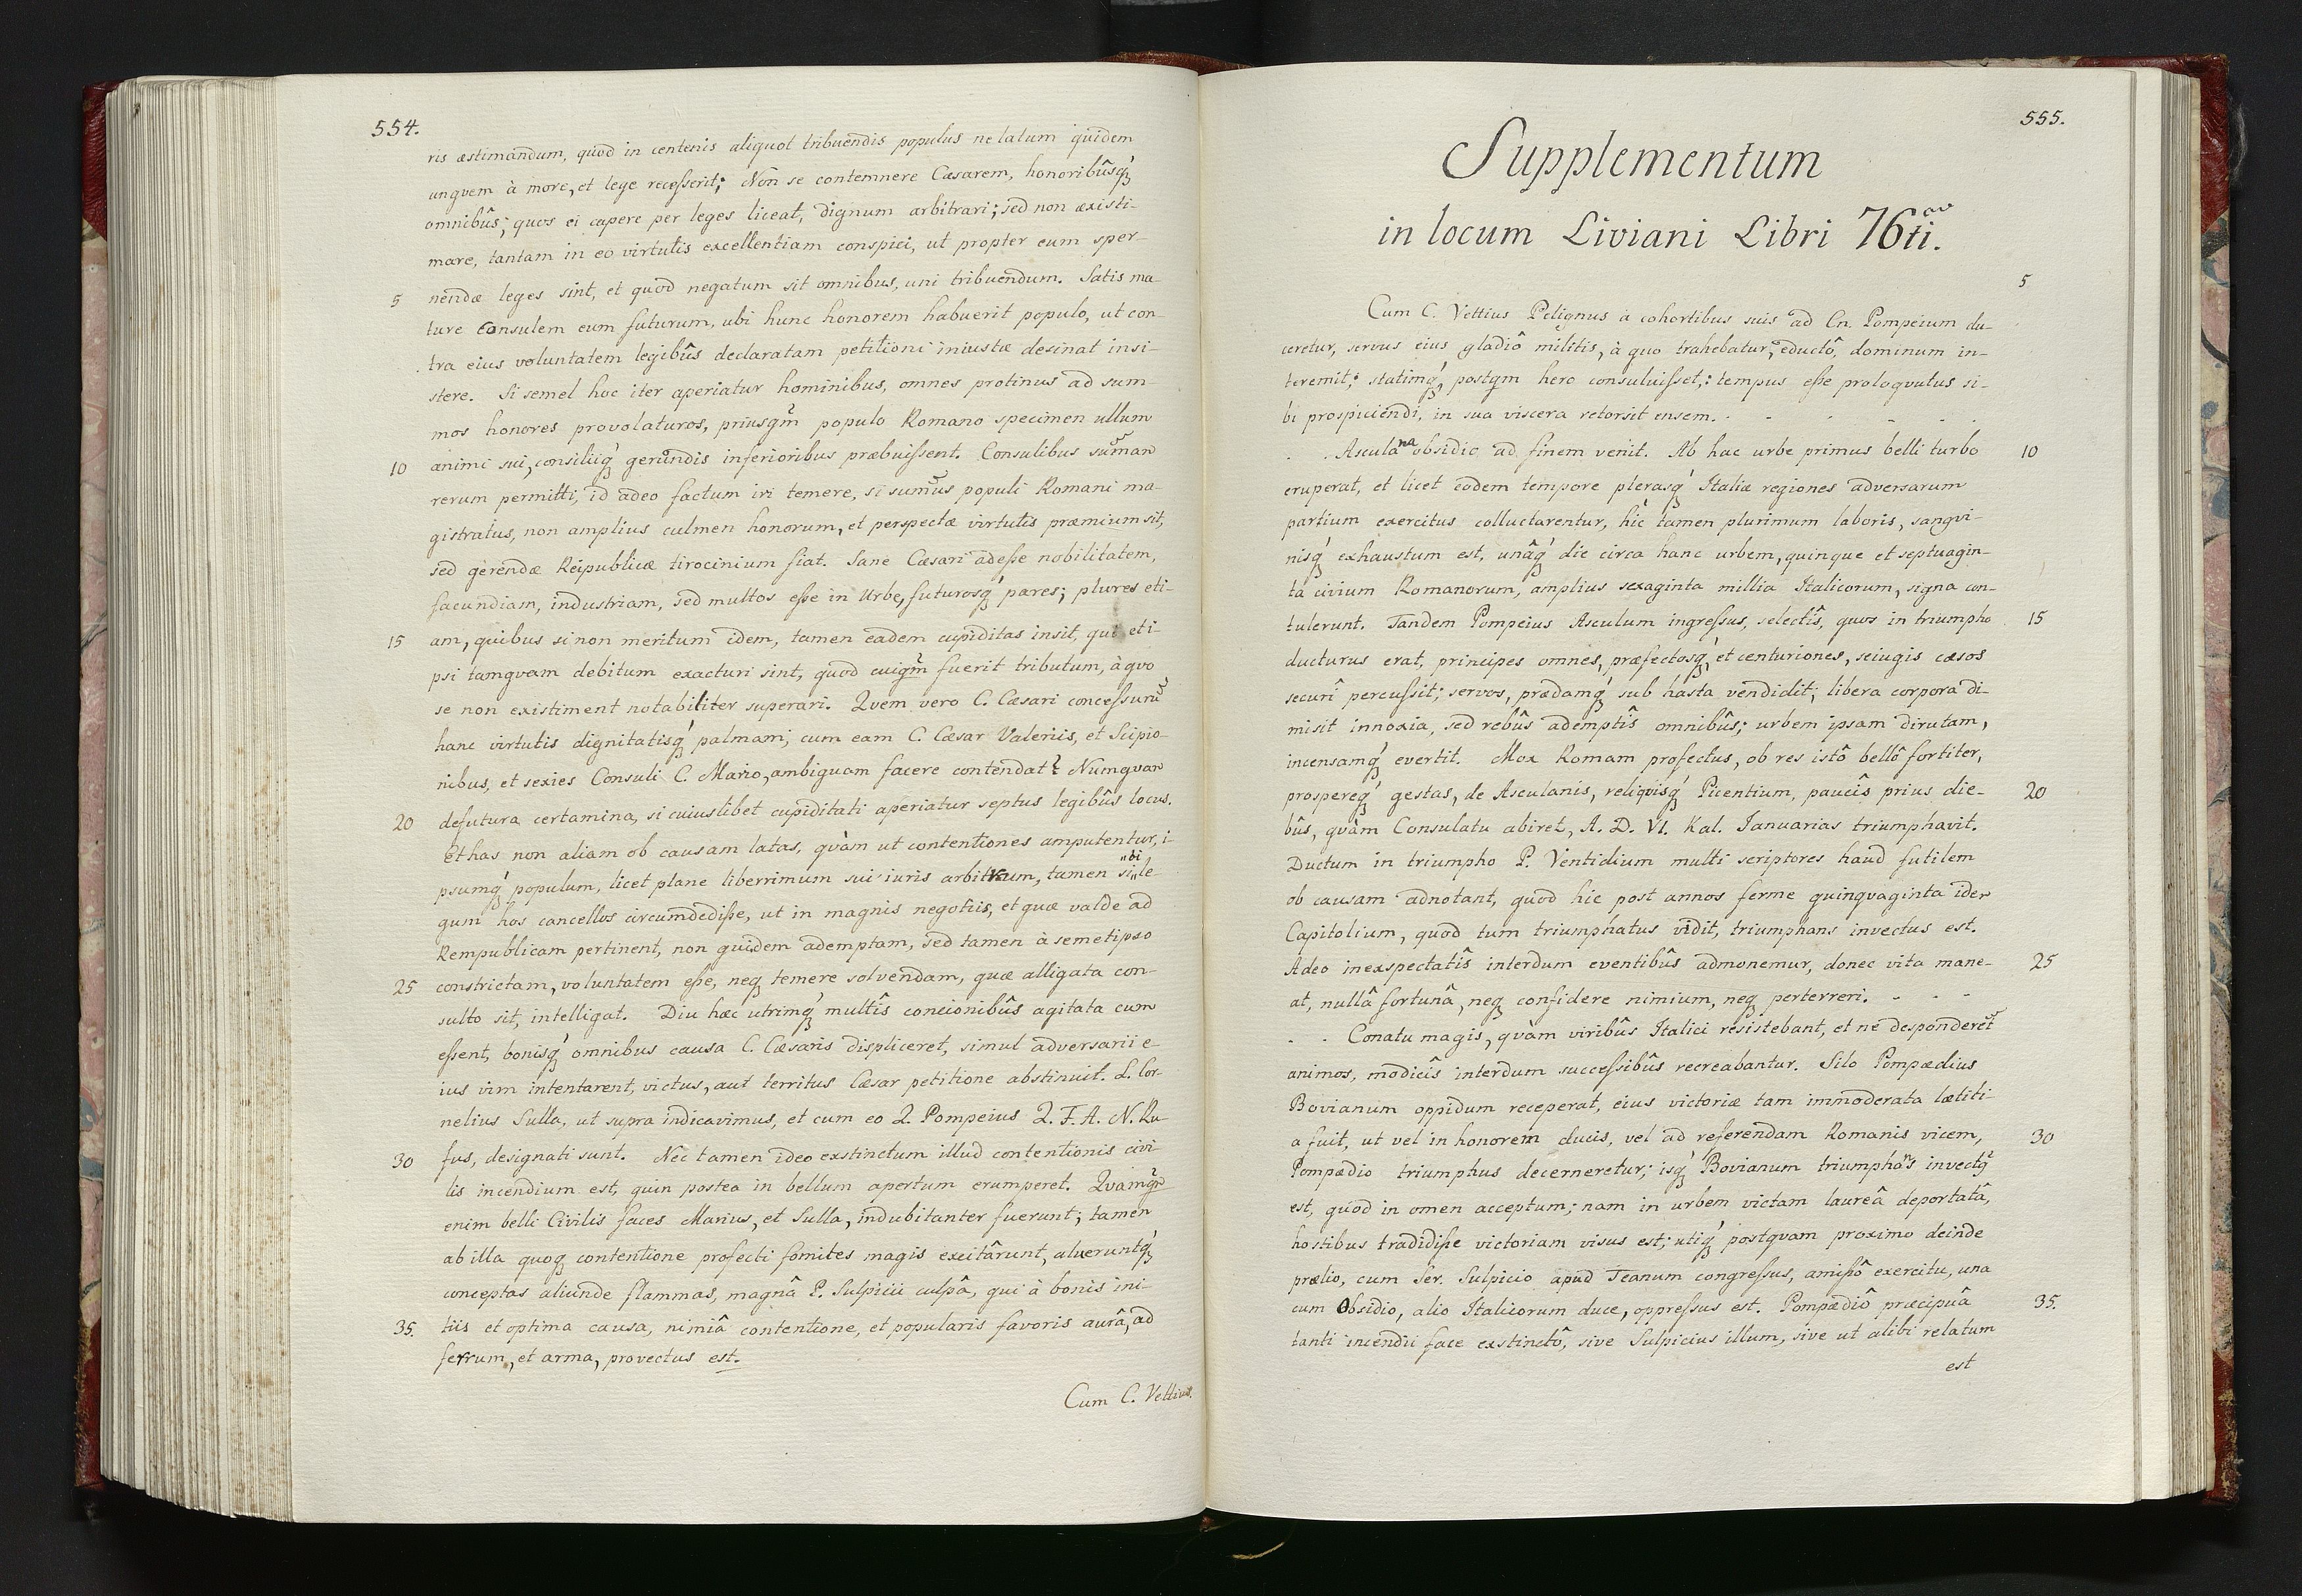 554.
ris æstimandum, quod in centenis aliquot tribuendis populus ne latum quidem
ungvem à more, et lege recesserit; Non se contemnere Cæsarem, honoribûsq́ꝫ
omnibûs; quos ei capere per leges liceat, dignum arbitrari; sed non æxisti-
mare, tantam in eo virtutis excellentiam conspici, ut propter eum sper-
5 nendæ leges sint, et quod negatum sit omnibus, uni tribuendum. Satis ma-
ture Consulem eum futurum, ubi hunc honorem habuerit populo, ut con-
tra eius voluntatem legibûs declaratam petitioni iniustæ desinat insi-
stere. Si semel hoc iter aperiatur hominibus, omnes protinus ad sum-
mos honores provolaturos, priusqm̃ populo Romano specimen ullum
10 animi sui, consiliiq́ꝫ gerundis inferioribus præbuissent. Consulibus sum̃am
rerum permitti, id adeo factum iri temere, si sum̃us populi Romani ma-
gistratus, non amplius culmen honorum, et perspectæ virtutis præmium sit,
sed gerendæ Reipublicæ tirocinium fiat. Sane Cæsari adesse nobilitatem,
facundiam, industriam, sed multos esse in Urbe, futurosq́ꝫ pares; plures eti-
15 am, quibus si non meritum idem, tamen eadem cupiditas insit, qui et i-
psi tamqvam debitum exacturi sint, quod cuiqm̃ fuerit tributum, à qvo
se non existiment notabiliter superari. Qvem vero C. Cæsari concessurũ
hanc virtutis dignitatisq́ꝫ palmam; cum eam C. Cæsar Valeriis, et Scipio-
nibus, et sexies Consuli C. Mario, ambiguam facere contendat? Numqvam
20 defutura certamina, si cuiuslibet cupiditati aperiatur septus legibûs locus.
Et has non aliam ob causam latas, qvàm ut contentiones amputentur, i-
psumq́ꝫ populum, licet plane liberrimum sui iuris arbitrum, tamen si„bi„ le
gum hos cancellos circumdedisse, ut in magnis negotiis, et quæ valde ad
Rempublicam pertinent, non quidem ademptam, sed tamen à semetipso
25 constrictam, voluntatem esse, neqꝫ temere solvendam, quæ alligata con-
sulto sit, intelligat. Diu hæc utrimq́ꝫ multîs concionibûs agitata cum
essent, bonisq́ꝫ omnibus causa C. Cæsaris displiceret, simul adversarii e-
ius vim intentarent, victus, aut territus Cæsar petitione abstinuit. L. Cor-
nelius Sulla, ut supra indicavimus, et cum eo Q. Pompeius Q. F. A. N. Ru-
30 fus, designati sunt. Nec tamen ideo exstinctum illud contentionis civi
lis incendium est, quin postea in bellum apertum erumperet. Qvamqm̃
enim belli Civilis faces Marius, et Sulla, indubitanter fuerunt; tamen
ab illa quoqꝫ contentione profecti fomites magis excitârunt, alueruntq́ꝫ
conceptas aliunde flammas, magnâ P. Sulpicii culpâ, qui à bonis ini-
35. tiis et optima causa, nimiâ contentione, et popularis favoris aurâ, ad
ferrum, et arma, provectus est.
Cum C. Vettius.
555.
Supplementum
in locum Liviani Libri 76ti.
5
Cum C. Vettius Pelignus à cohortibus suis ad Cn. Pompeium du-
ceretur, servus eius gladiô militis, à quo trahebatur, eductô, dominum in-
teremit; statimq́ꝫ, postqm hero consuluisset,: tempus esse proloqvutus si-
bi prospiciendi, in sua viscera retorsit ensem. - - - - -
- . Asculana obsidio ad finem venit. Ab hac urbe primus belli turbo 10
eruperat, et licet eodem tempore plerasq́ꝫ Italiæ regiones adversarum
partium exercitus colluctarentur, hîc tamen plurimum laboris, sangvi-
nisq́ꝫ exhaustum est, unâq́ꝫ die circa hanc urbem, quinque et septuagin-
ta civium Romanorum, amplius sexaginta millia Italicorum, signa con-
tulerunt. Tandem Pompeius Asculum ingressus, selectîs, quos in triumpho 15
ducturus erat, principes omnes, præfectosq́ꝫ, et centuriones, seiugis cæsos
securî percussit; servos, prædamq́ꝫ sub hasta vendidit; libera corpora di-
misit innoxia, sed rebûs ademptîs omnibûs; urbem ipsam dirutam,
incensamq́ꝫ evertit. Mox Romam profectus, ob res istô bellô fortiter,
prospereq́ꝫ gestas, de Asculanis, reliqvisq́ꝫ Picentium, paucîs prius die- 20
bûs, qvàm Consulatu abiret, A. D. VI. Kal. Ianuarias triumphavit.
Ductum in triumpho P. Ventidium multi scriptores haud futilem
ob causam adnotant, quod hic post annos ferme quinqvaginta idem
Capitolium, quod tum triumphatus vidit, triumphans invectus est.
Adeo inexspectatîs interdum eventibûs admonemur, donec vita mane- 25
at, nullâ fortunâ, neqꝫ confidere nimium, neqꝫ perterreri. - - -
- . Conatu magis, qvàm viribûs Italici resistebant, et ne desponderẽt
animos, modicîs interdum successibûs recreabantur. Silo Pompædius
Bovianum oppidum receperat, eius victoriæ tam immoderata lætiti-
a fuit, ut vel in honorem ducis, vel ad referendam Romanis vicem, 30
Pompædio triumphus decerneretur; isq́ꝫ Bovianum triumphans invectꝰ
est, quod in omen acceptum; nam in urbem victam laureâ deportatâ,
hostibus tradidisse victoriam visus est; utiq́ꝫ postqvam proximo deinde
prælio, cum Ser. Sulpicio apud Teanum congressus, amissô exercitu, una
cum Obsidio, alio Italicorum duce, oppressus est. Pompædiô præcipuâ 35.
tanti incendii face exstinctô, sive Sulpicius illum, sive ut alibi relatum
est